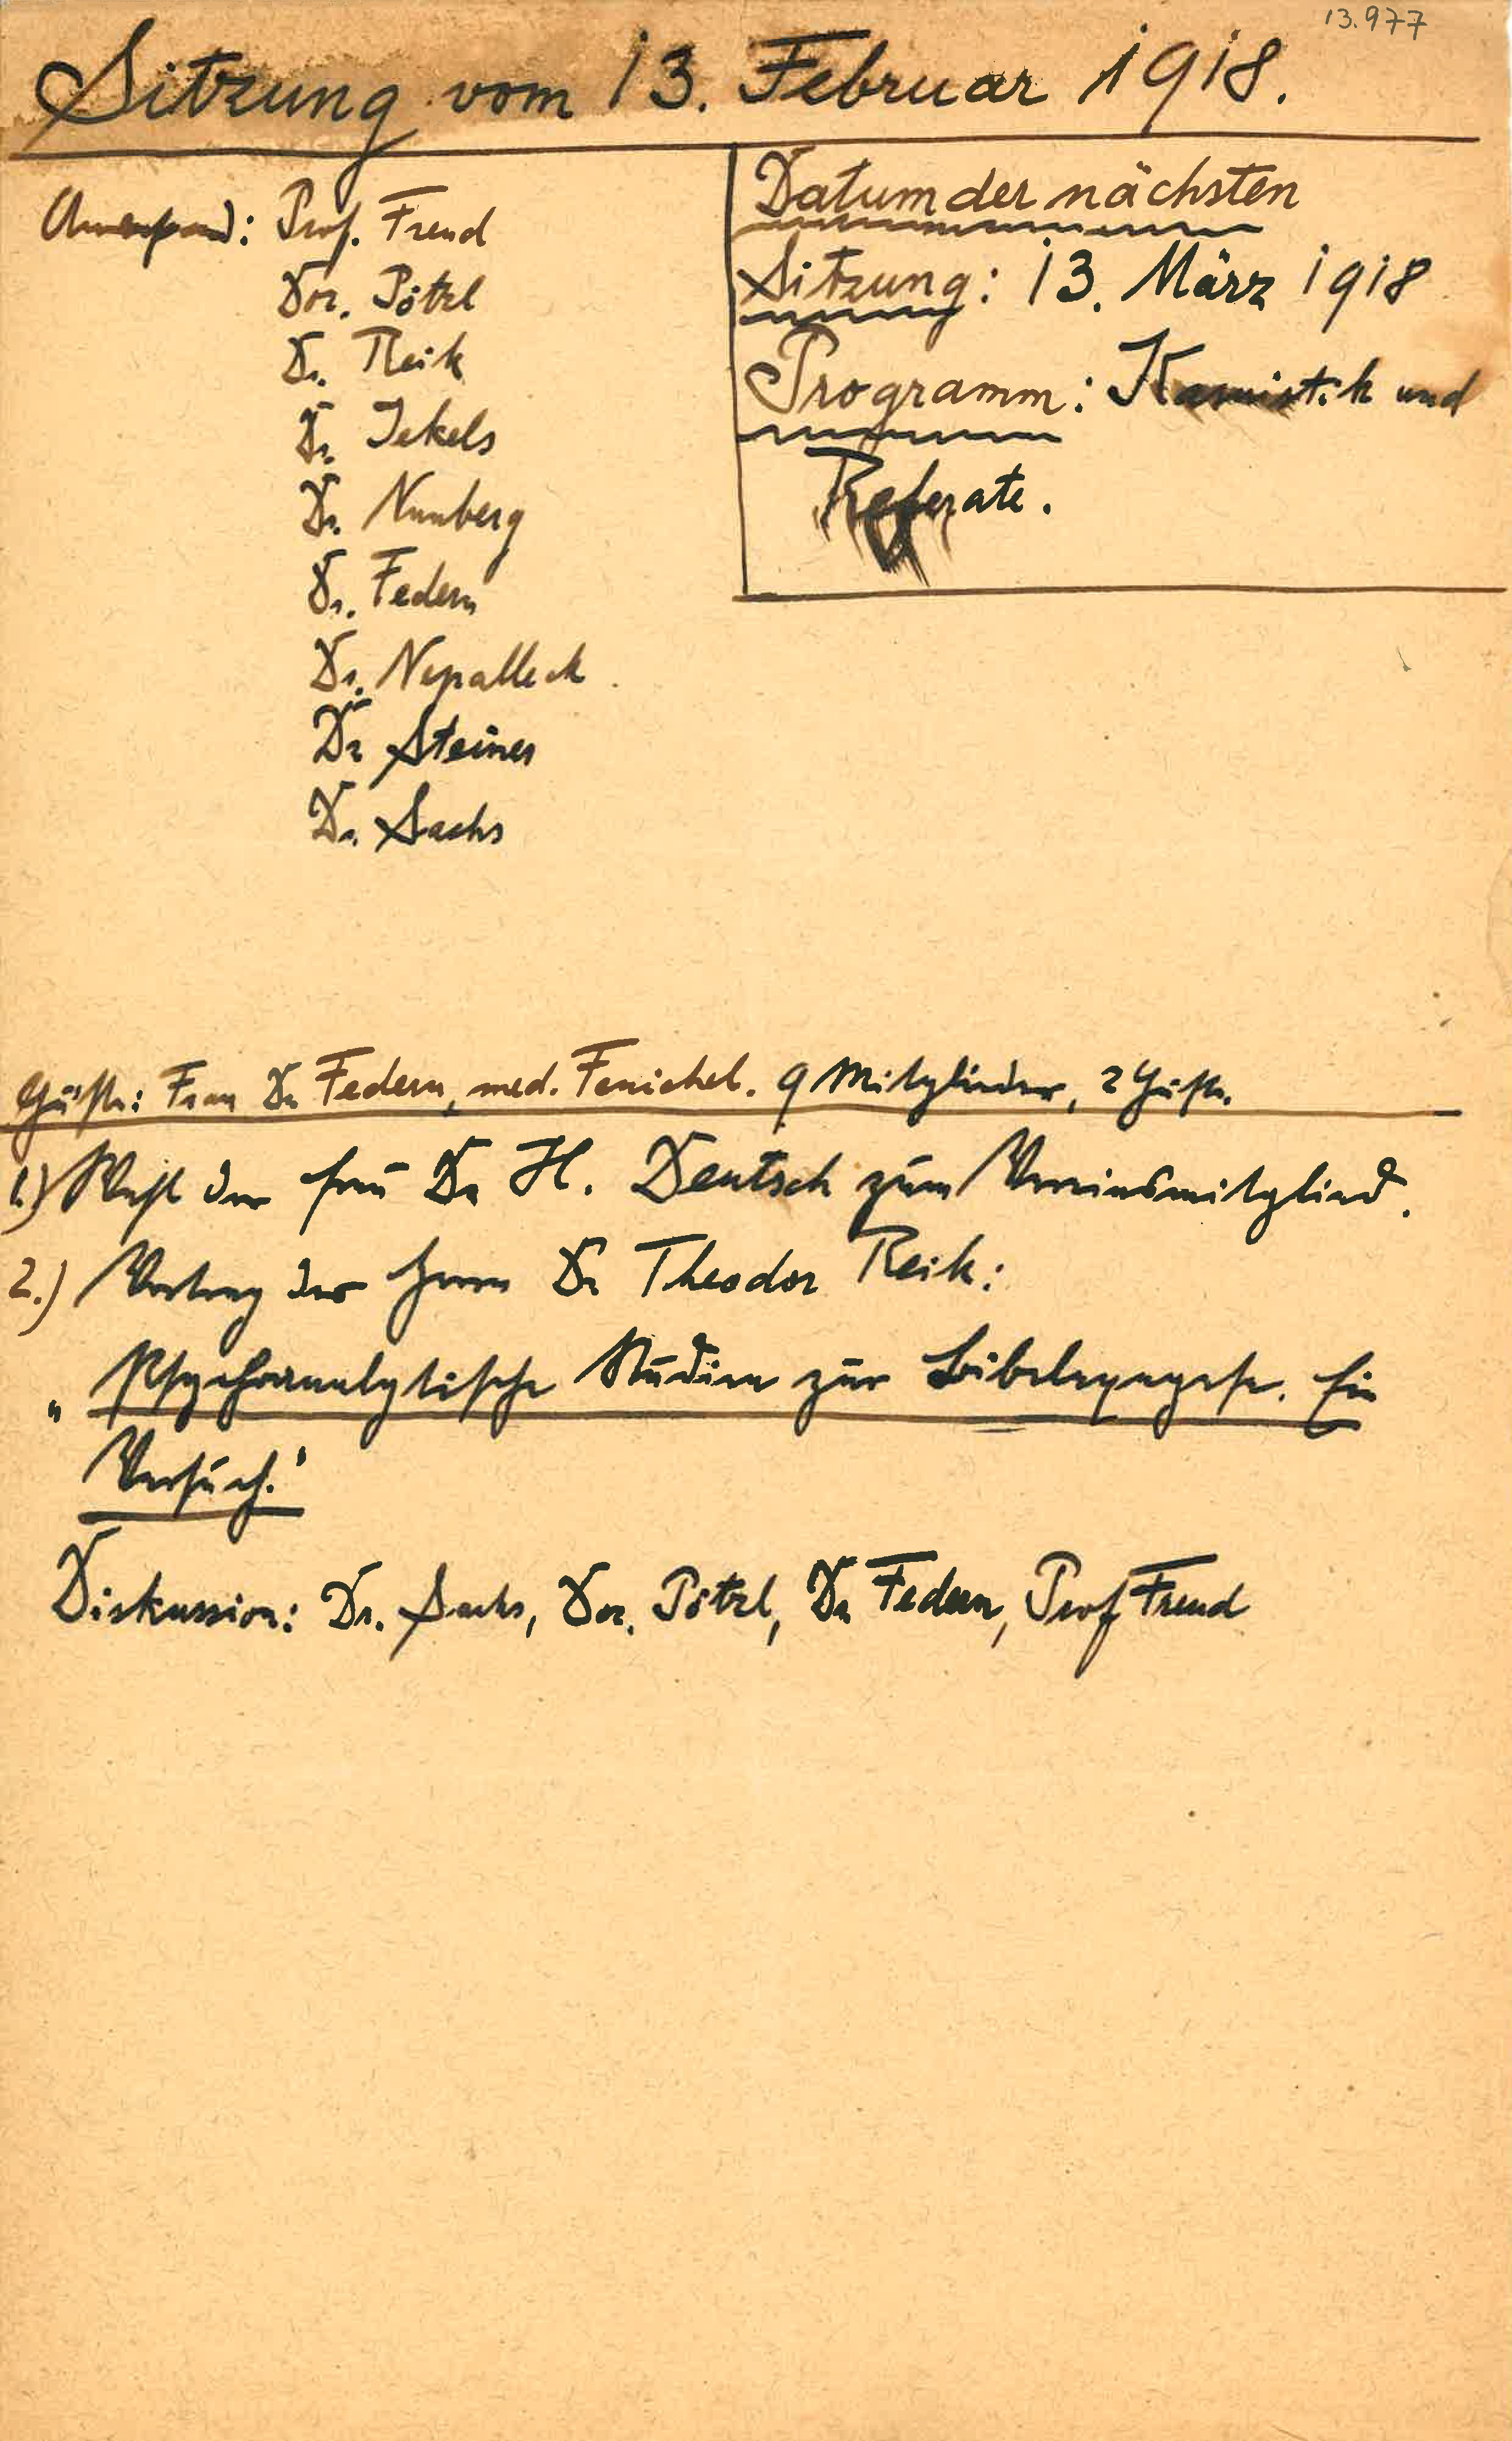 13.977
Sitzung vom 13. Februar 1918.
Anwesend: Prof. Freud
Doz. Pötzl
Dr. Reik
Dr. Jekels
Dr. Nunberg
Dr. Federn
Dr. Nepalleck
Dr Steiner
Dr. Sachs
Datum der nächsten
Sitzung: 13. März 1918
Programm: Kasuistik und
Referate.
Gäste: Frau Dr Federn, med. Fenichel. 9 Mitglieder, 2 Gäste.
1.) Wahl der Frau Dr H. Deutsch zum Vereinsmitglied.
2.) Vortrag des Herrn Dr Theodor Reik:
„Psychoanalytische Studien zur Bibelexegese. Ein
Versuch."
Diskussion: Dr. Sachs, Doz. Pötzl, Dr Federn, Prof Freud